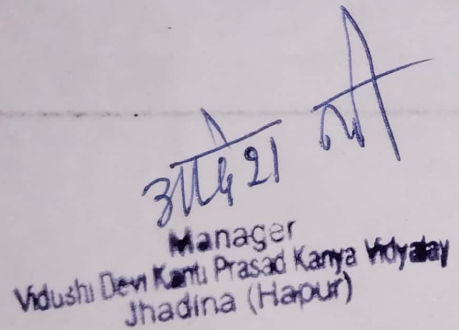 आदेश
Manager
Vidushi Devi Kanti Prasad Kanya Vidyalay
Jhadina (Hapur)